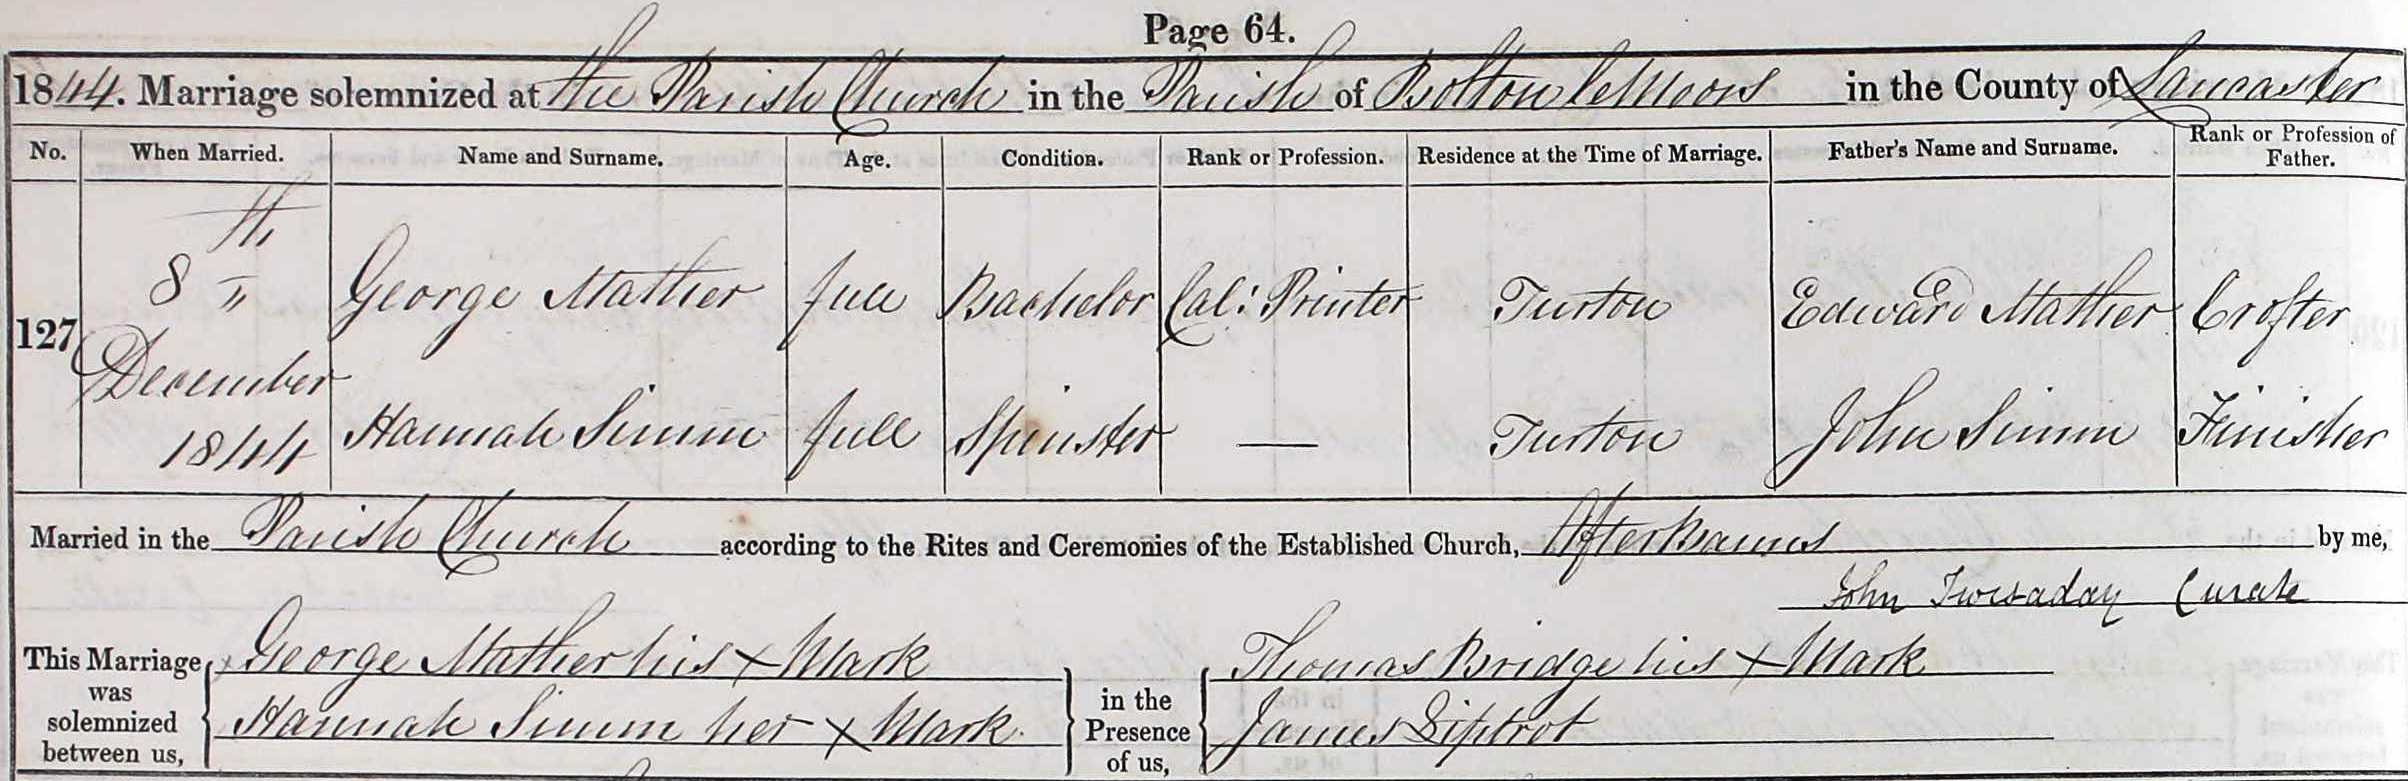 Page 64.
1844. Marriage solemnized at the Parish Church in the Parish of Bolton le Moors in the County of Lancaster
No. When Married. Name and Surname. Age. Condition. Rank or Profession. Residence at the Time of Marriage. Father's Name and Surname. Rank or Profession of Father.
127 8th December 1844
George Mather full Bachelor Cal: Printer Turton Edward Mather Crofter
Hannah Simm full Spinster — Turton John Simm Finisher
Married in the Parish Church according to the Rites and Ceremonies of the Established Church, After Banns by me,
John Twisaday Curate
This Marriage was solemnized between us,
George Mather his x Mark
Hannah Simm her x Mark
in the Presence of us,
Thomas Bridge his x Mark
James Siptrot